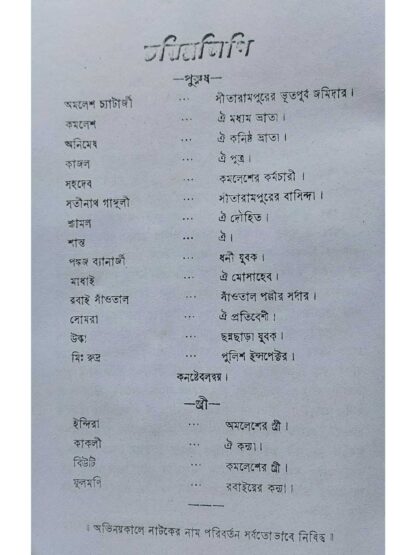 চরিত্রলিপি
—পুরুষ—
অমলেশ চ্যাটার্জী ... সীতারামপুরের ভূতপূর্ব জমিদার।
কমলেশ ... ঐ মধ্যম ভ্রাতা।
অনিমেষ ... ঐ কনিষ্ঠ ভ্রাতা।
কাজল ... ঐ পুত্র।
সহদেব ... কমলেশের কর্মচারী।
সতীনাথ গাঙ্গুলী ... সীতারামপুরের বাসিন্দা।
শ্যামল ... ঐ দৌহিত্র।
শান্ত ... ঐ।
পঙ্কজ ব্যানার্জী ... ধনী যুবক।
মাধাই ... ঐ মোসাহেব।
রবাই সাঁওতাল ... সাঁওতাল পল্লীর সর্দার।
সোমরা ... ঐ প্রতিবেশী।
উল্কা ... ছন্নছাড়া যুবক।
মিঃ রুদ্র ... পুলিশ ইন্সপেক্টর।
কনষ্টেবলদ্বয়।
—স্ত্রী—
ইন্দিরা ... অমলেশের স্ত্রী।
কাকলী ... ঐ কন্যা।
বিউটি ... কমলেশের স্ত্রী।
ফুলমণি ... রবাইয়ের কন্যা।
॥ অভিনয়কালে নাটকের নাম পরিবর্তন সর্বতোভাবে নিষিদ্ধ ॥